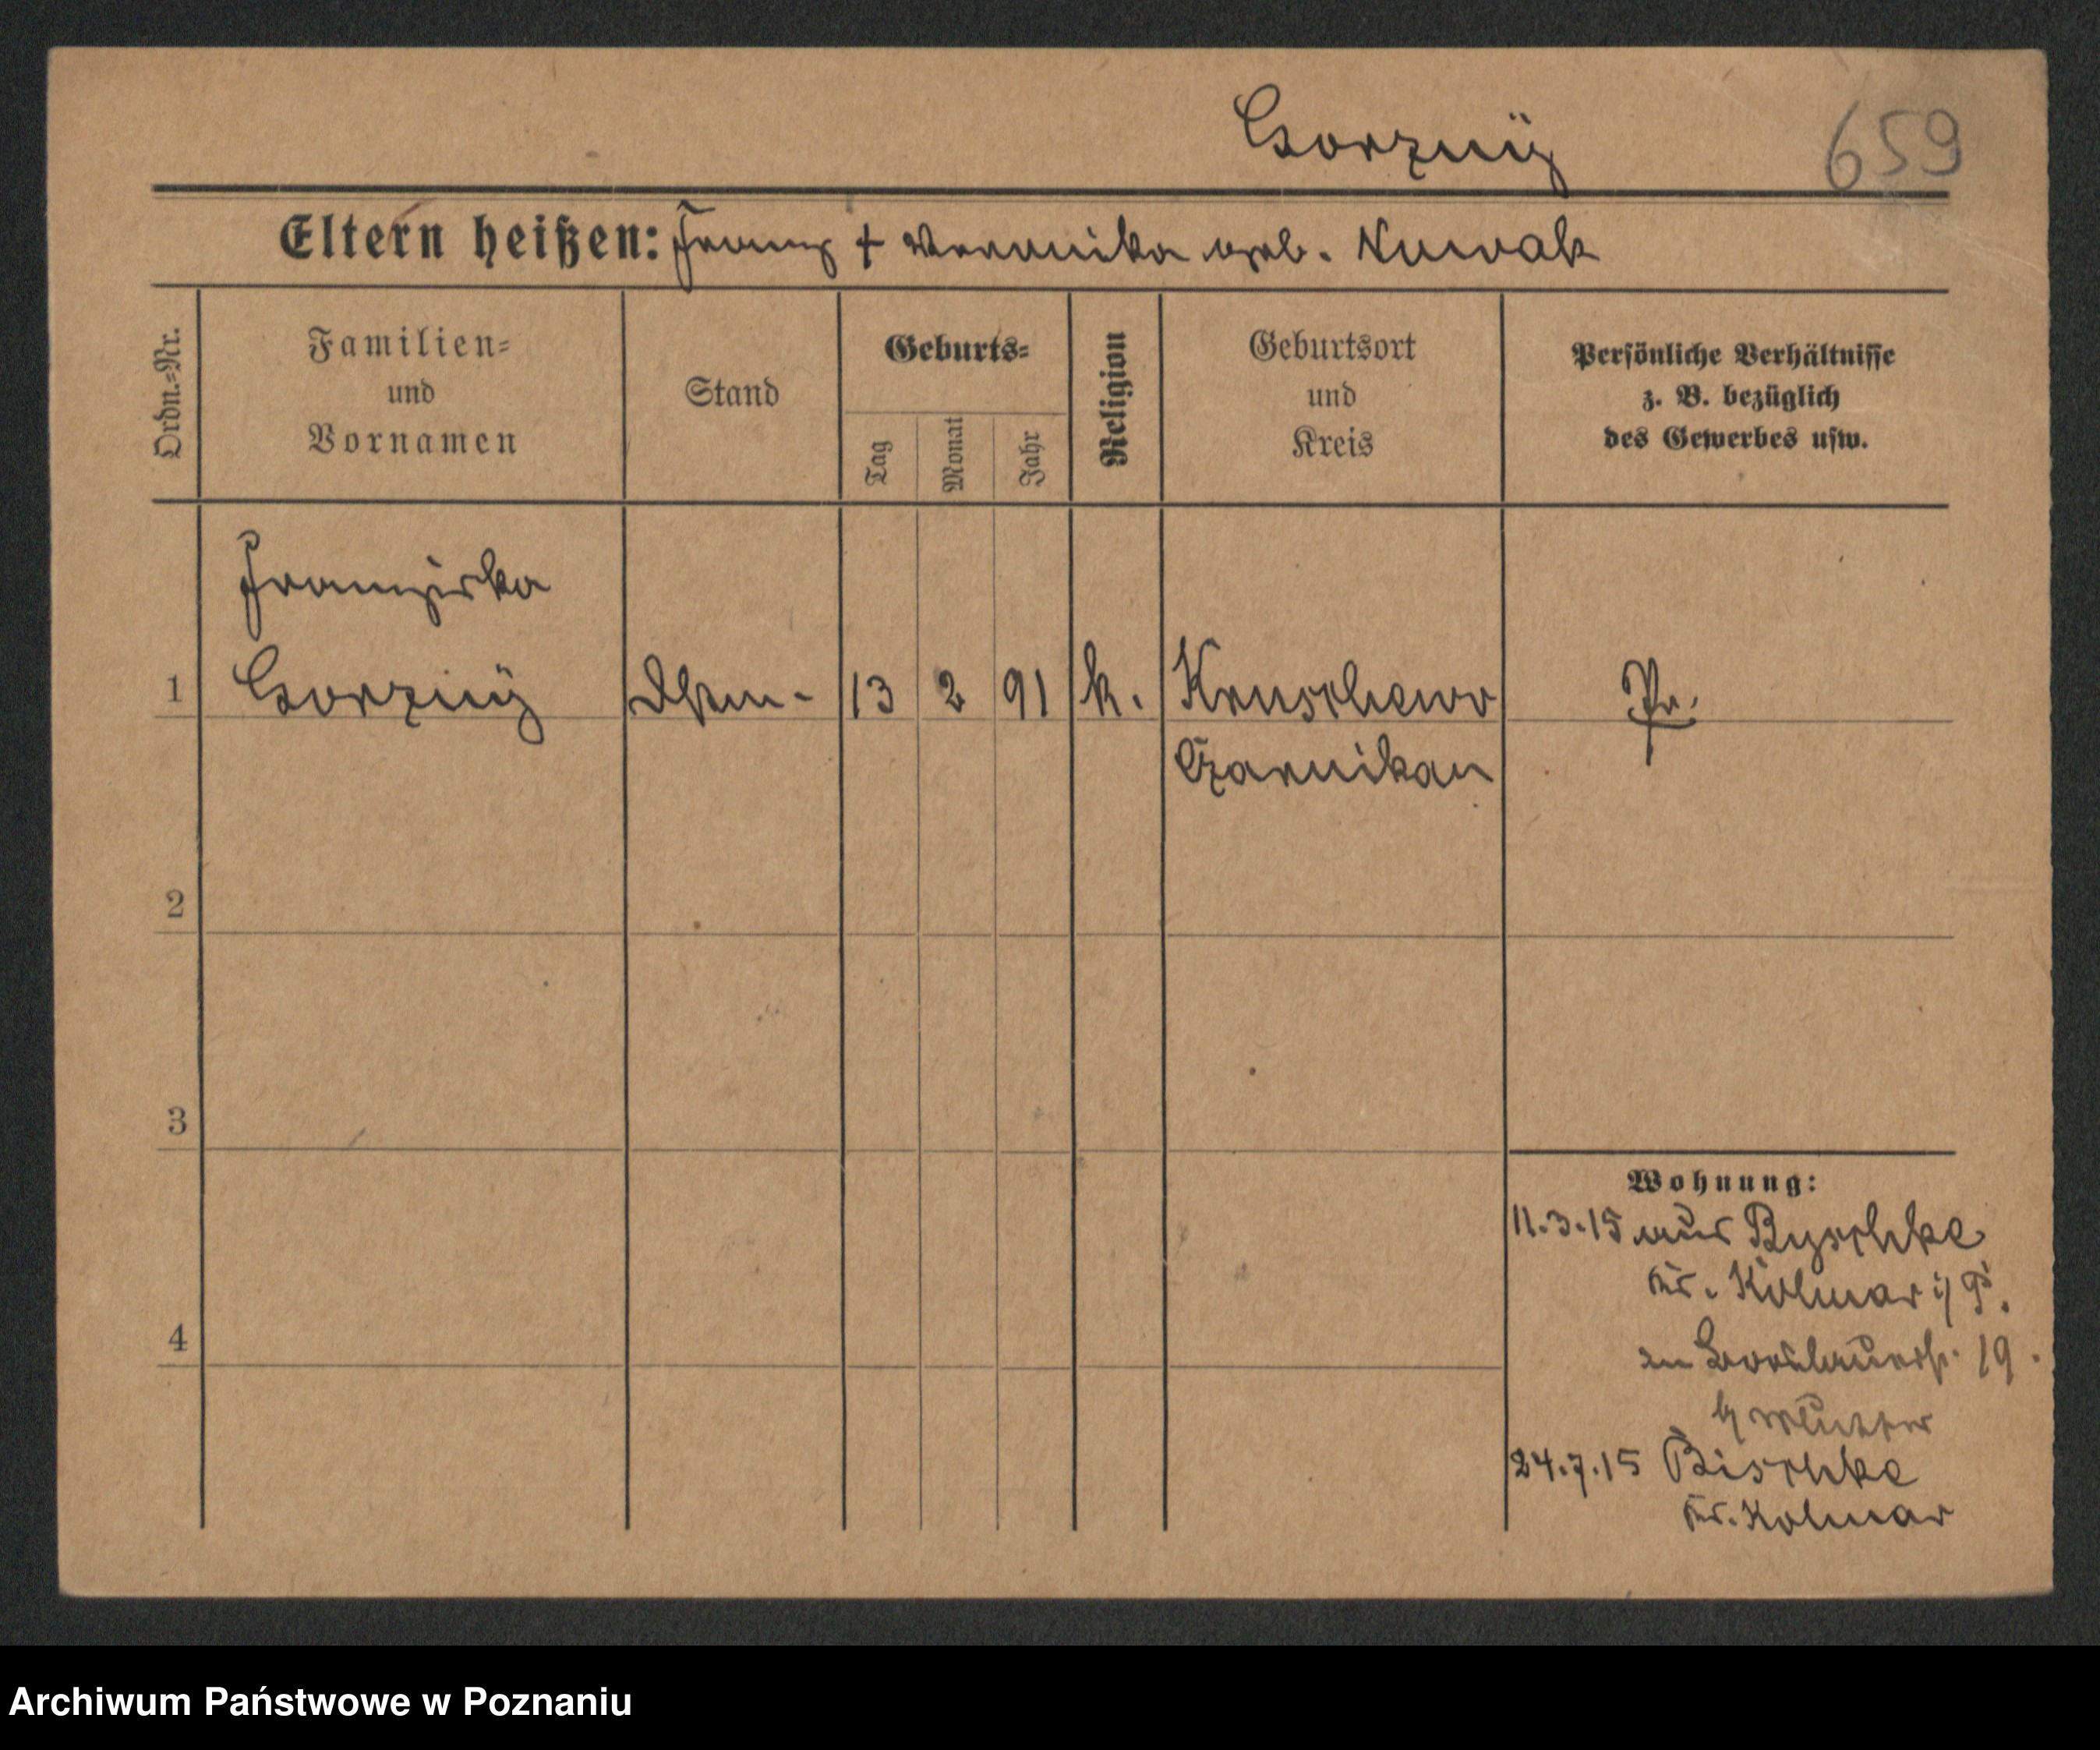 Gorzny
659
Eltern heißen: Franz + Veronika geb. Nowak
Ordn.=Nr.
Familien=
und
Vornamen
Stand
Geburts=
Tag
Monat
Jahr
Religion
Geburtsort
und
Kreis
Persönliche Verhältnisse
z. B. bezüglich
des Gewerbes usw.
Franziska
1 Gorzny 13 2 91 k. Kruschewo Pr.
Czarnikau
2
3
4
Wohnung:
11.3.15 aus Byschke
Kr. Kolmar i/P.
zu 19.
b/ Mutter
24.7.15 Bischke
Kr. Kolmar
Archiwum Państwowe w Poznaniu